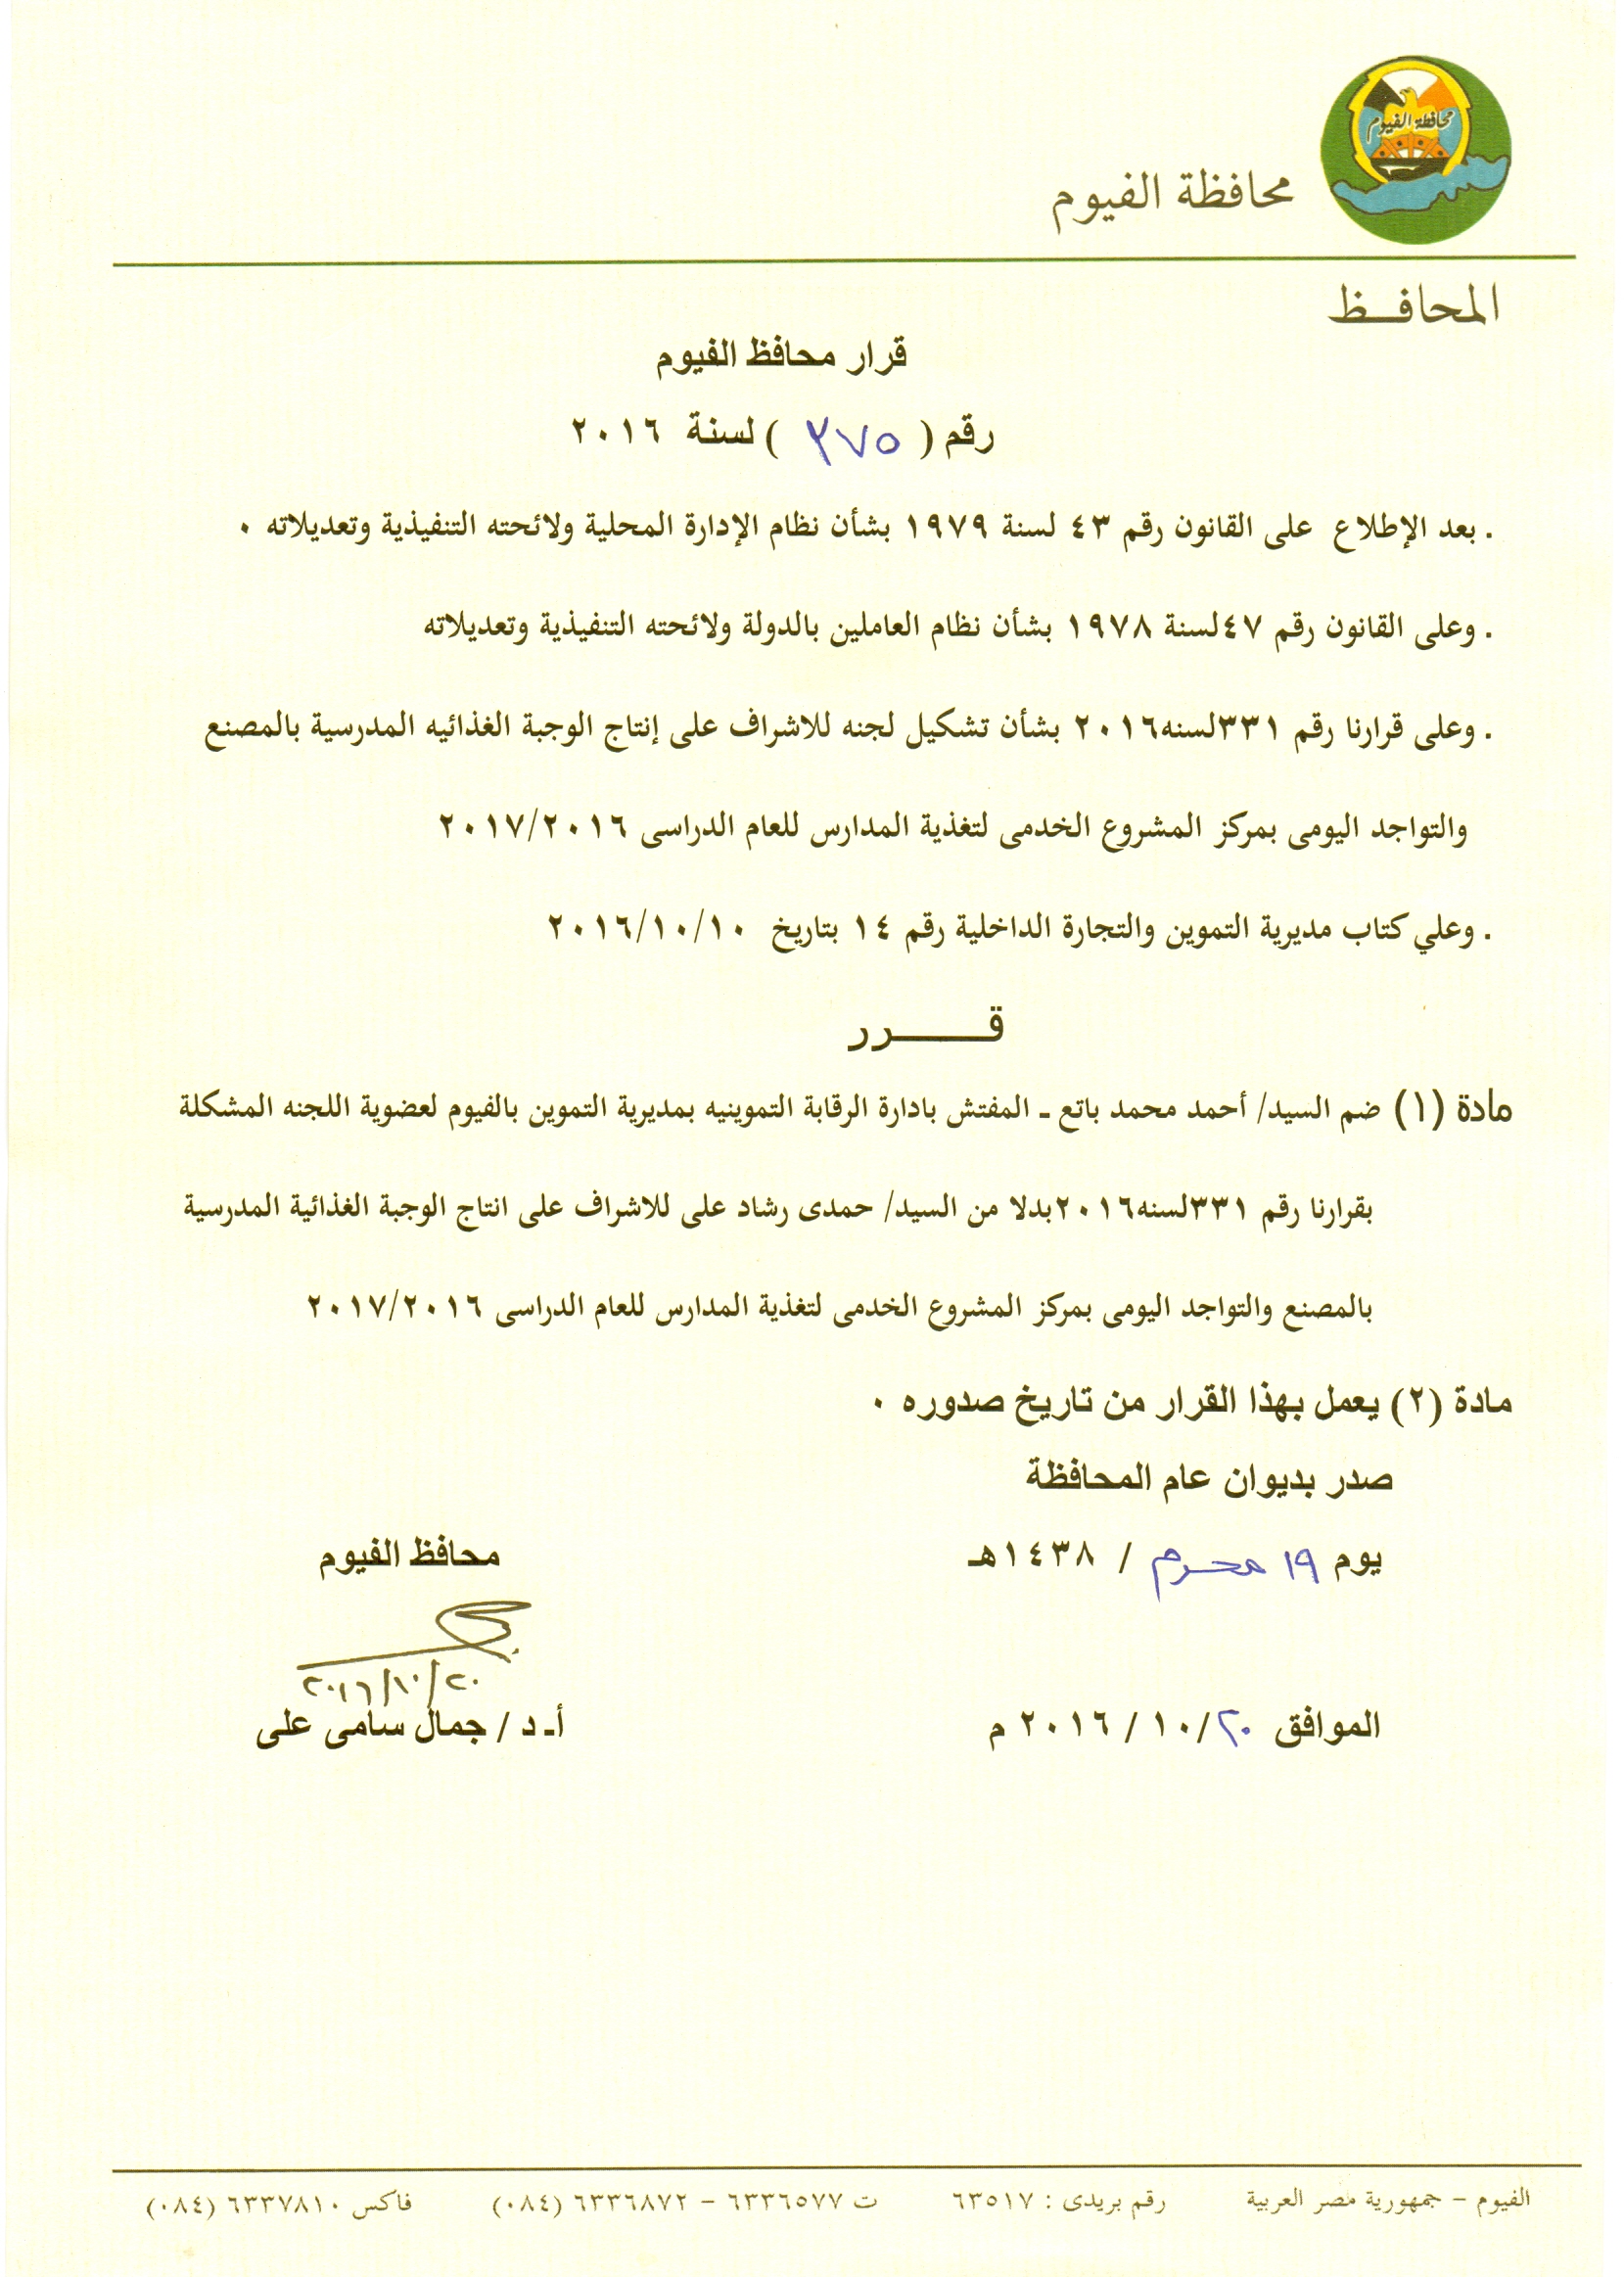 محافظة الفيوم
محافظة الفيوم
المحافـظ
قرار محافظ الفيوم
رقم ( ٣٧٥ ) لسنة ٢٠١٦
. بعد الإطلاع على القانون رقم ٤٣ لسنة ١٩٧٩ بشأن نظام الإدارة المحلية ولائحته التنفيذية وتعديلاته ٠
. وعلى القانون رقم ٤٧لسنة ١٩٧٨ بشأن نظام العاملين بالدولة ولائحته التنفيذية وتعديلاته
. وعلى قرارنا رقم ٣٣١لسنه٢٠١٦ بشأن تشكيل لجنه للاشراف على إنتاج الوجبة الغذائيه المدرسية بالمصنع
والتواجد اليومى بمركز المشروع الخدمى لتغذية المدارس للعام الدراسى ٢٠١٧/٢٠١٦
. وعلي كتاب مديرية التموين والتجارة الداخلية رقم ١٤ بتاريخ ٢٠١٦/١٠/١٠
قـــــرر
مادة (١) ضم السيد/ أحمد محمد باتع ـ المفتش بادارة الرقابة التموينيه بمديرية التموين بالفيوم لعضوية اللجنه المشكلة
بقرارنا رقم ٣٣١لسنه٢٠١٦بدلا من السيد/ حمدى رشاد على للاشراف على انتاج الوجبة الغذائية المدرسية
بالمصنع والتواجد اليومى بمركز المشروع الخدمى لتغذية المدارس للعام الدراسى ٢٠١٧/٢٠١٦
مادة (٢) يعمل بهذا القرار من تاريخ صدوره ٠
صدر بديوان عام المحافظة
يوم ١٩ محرم / ١٤٣٨هـ
محافظ الفيوم
٢٠١٦/١٠/٢٠
الموافق ٢٠/ ١٠ / ٢٠١٦ م
أ ـ د / جمال سامى على
الفيوم – جمهورية مصر العربية رقم بريدى : ٦٣٥١٧ ت ٦٣٣٦٥٧٧ – ٦٣٣٦٨٧٢ (٠٨٤) فاكس ٦٣٣٧٨١٠ (٠٨٤)